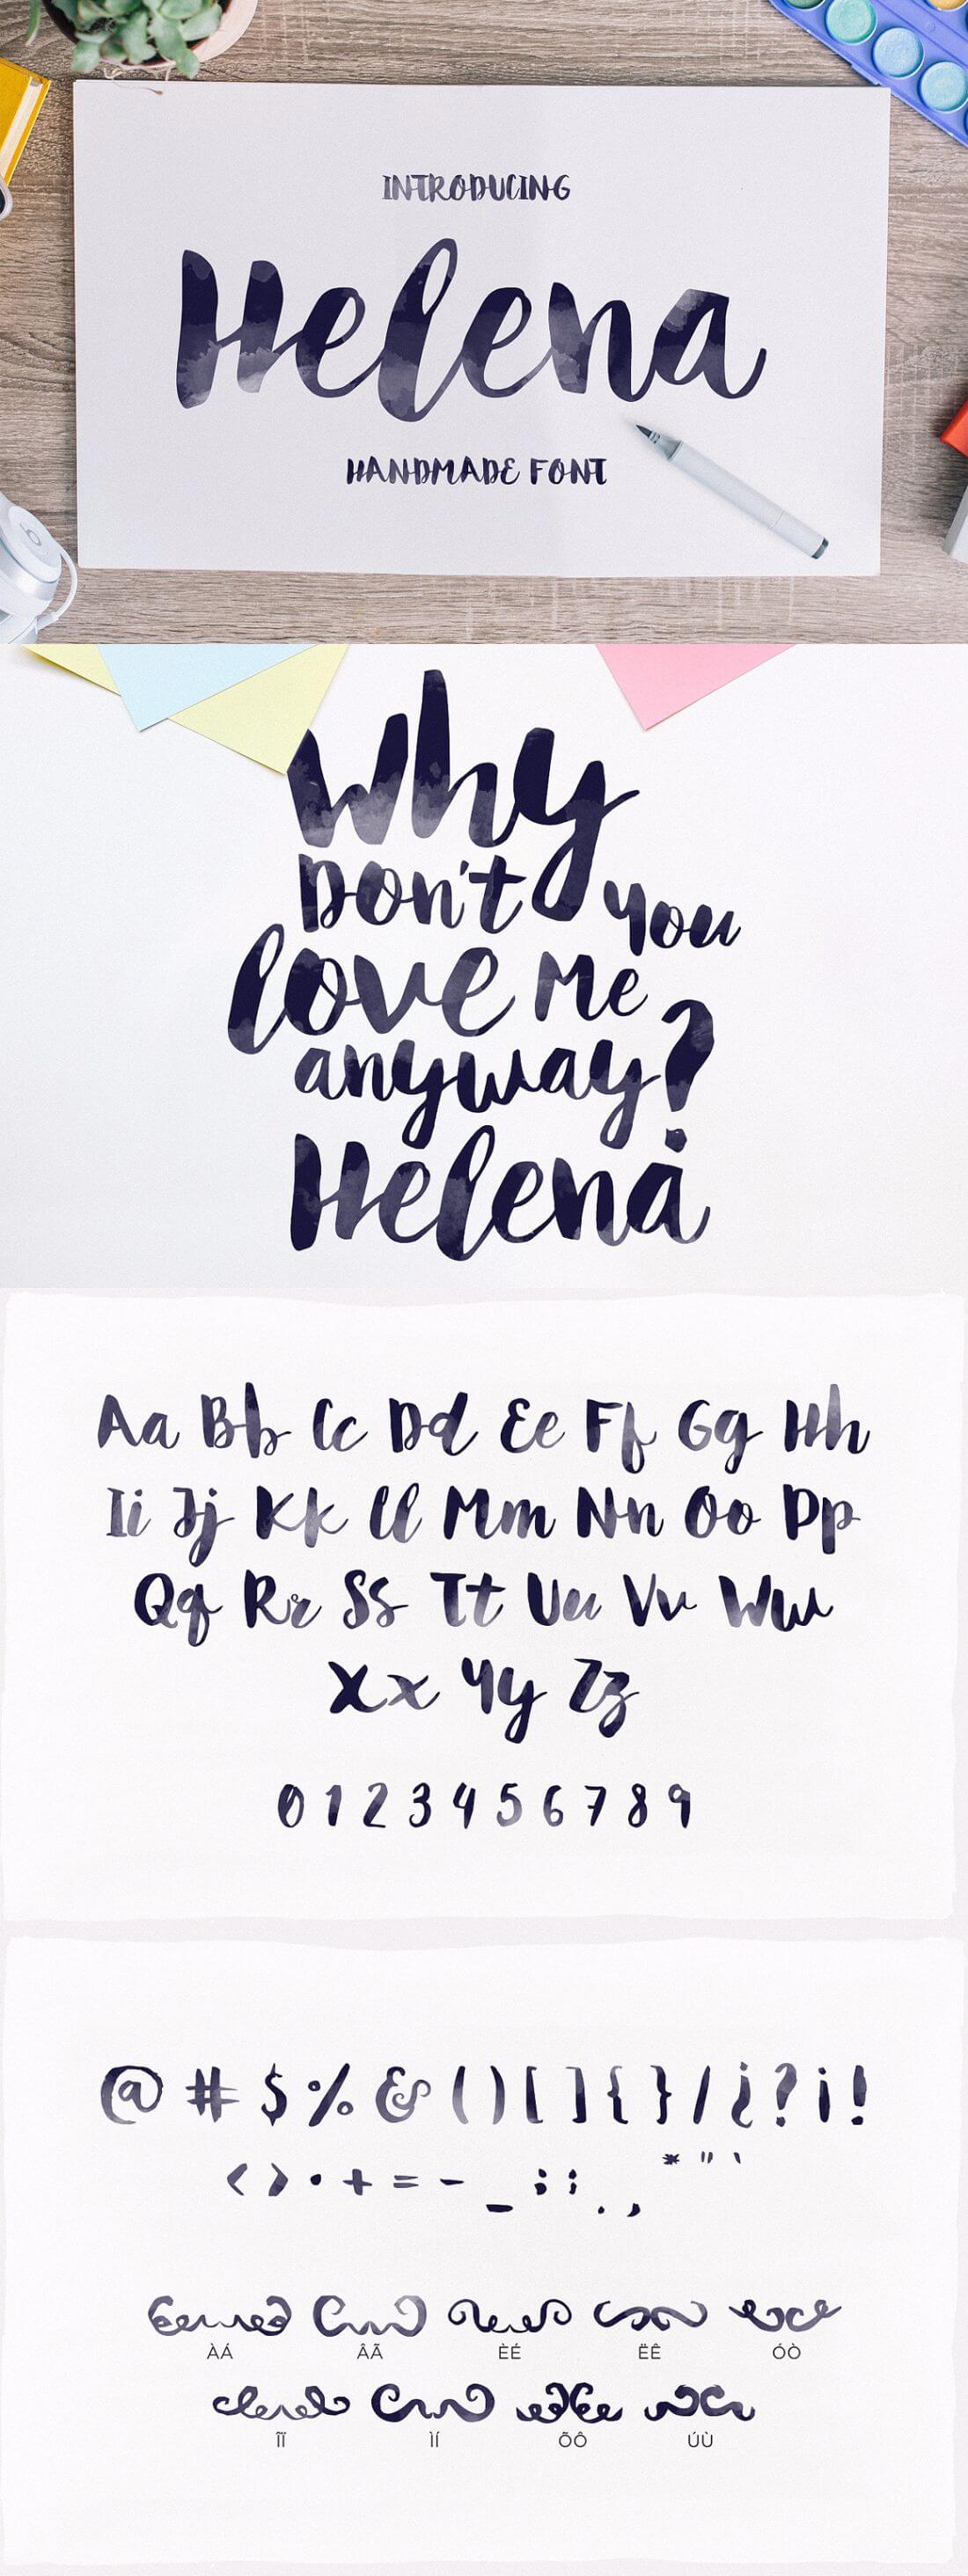 INTRODUCING
Helena
HANDMADE FONT
Why
Don't you
love Me
anyway?
Helena
Aa Bb Cc Dd Ee Ff Gg Hh
Ii Jj Kk Ll Mm Nn Oo Pp
Qq Rr Ss Tt Uu Vv Ww
Xx Yy Zz
0 1 2 3 4 5 6 7 8 9
@ # $ % & ( ) [ ] { } / ¿ ? ¡ !
< > • + = - _ ; : . , * " `
ÀÁ ÂÃ ÈÉ ËÊ ÓÒ
ÎÏ ÌÍ ÕÔ ÚÙ